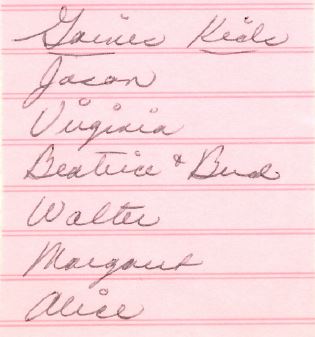 Gaines Kids
Jason
Virginia
Beatrice & Bud
Walter
Margaret
Alice